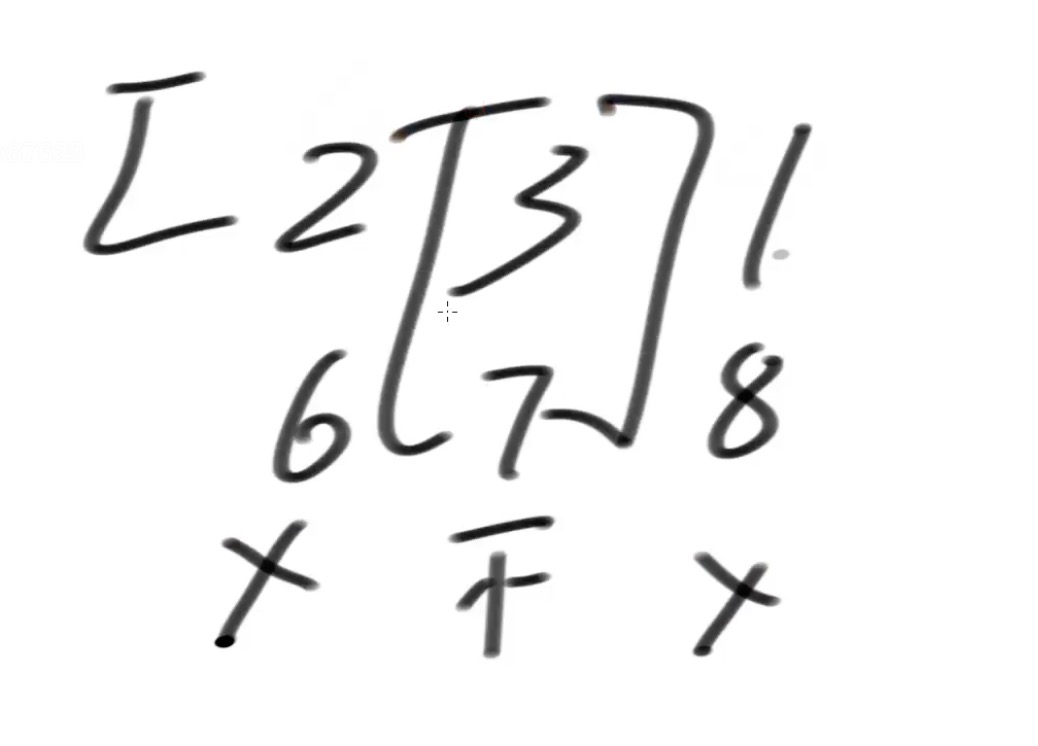 [ 2 [ 3 ] 1
6 7 8
x F x